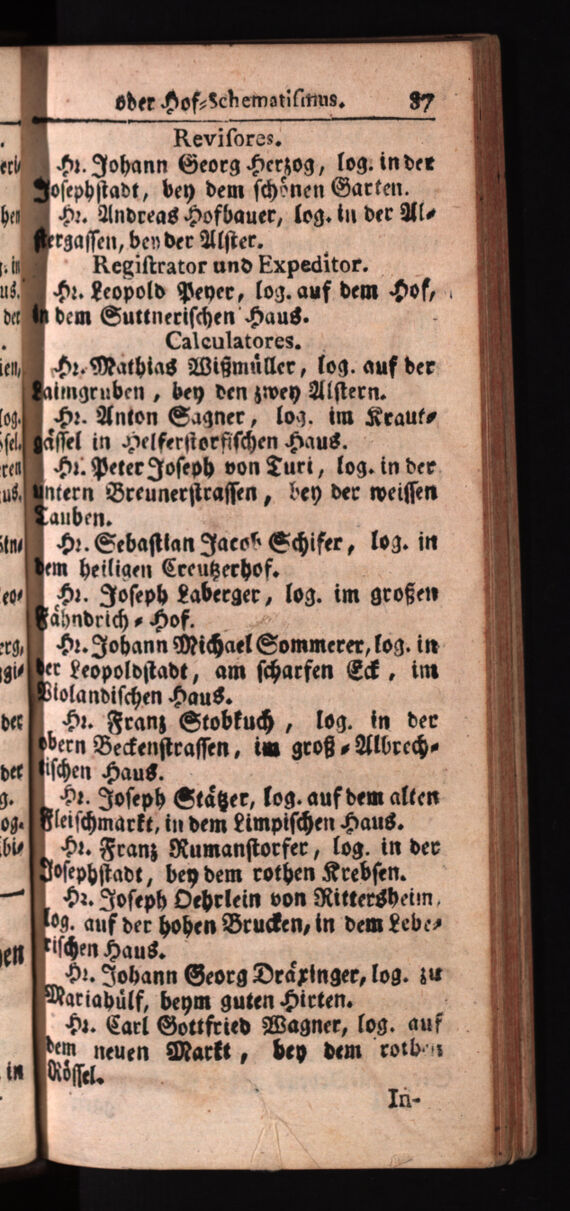 oder Hof-Schematismus. 87
Revisores.
Hr. Johann Georg Herzog, log. in der
Josephstadt, bey dem schönen Garten.
Hr. Andreas Hofbauer, log. in der Al-
stergassen, bey der Alster.
Registrator und Expeditor.
Hr. Leopold Peyer, log. auf dem Hof,
in dem Suttnerischen Haus.
Calculatores.
Hr. Mathias Wißmüller, log. auf der
Laimgruben, bey den zwey Alstern.
Hr. Anton Sagner, log. im Kraut-
gässel in Helferstorfischen Haus.
Hr. Peter Joseph von Turi, log. in der
untern Breunerstrassen, bey der weissen
Tauben.
Hr. Sebastian Jacob Schifer, log. in
dem heiligen Creutzerhof.
Hr. Joseph Laberger, log. im großen
Fähndrich-Hof.
Hr. Johann Michael Sommerer, log. in
der Leopoldstadt, am scharfen Eck, im
Violandischen Haus.
Hr. Franz Stobkuch, log. in der
obern Beckenstrassen, im groß-Albrech-
tischen Haus.
Hr. Joseph Stätzer, log. auf dem alten
Fleischmarkt, in dem Limpischen Haus.
Hr. Franz Rumanstorfer, log. in der
Josephstadt, bey dem rothen Krebsen.
Hr. Joseph Oehrlein von Rittersheim,
log. auf der hohen Brucken, in dem Lebe-
rischen Haus.
Hr. Johann Georg Dräxinger, log. zu
Mariahülf, beym guten Hirten.
Hr. Carl Gottfried Wagner, log. auf
dem neuen Markt, bey dem rothen
Rössel.
In-